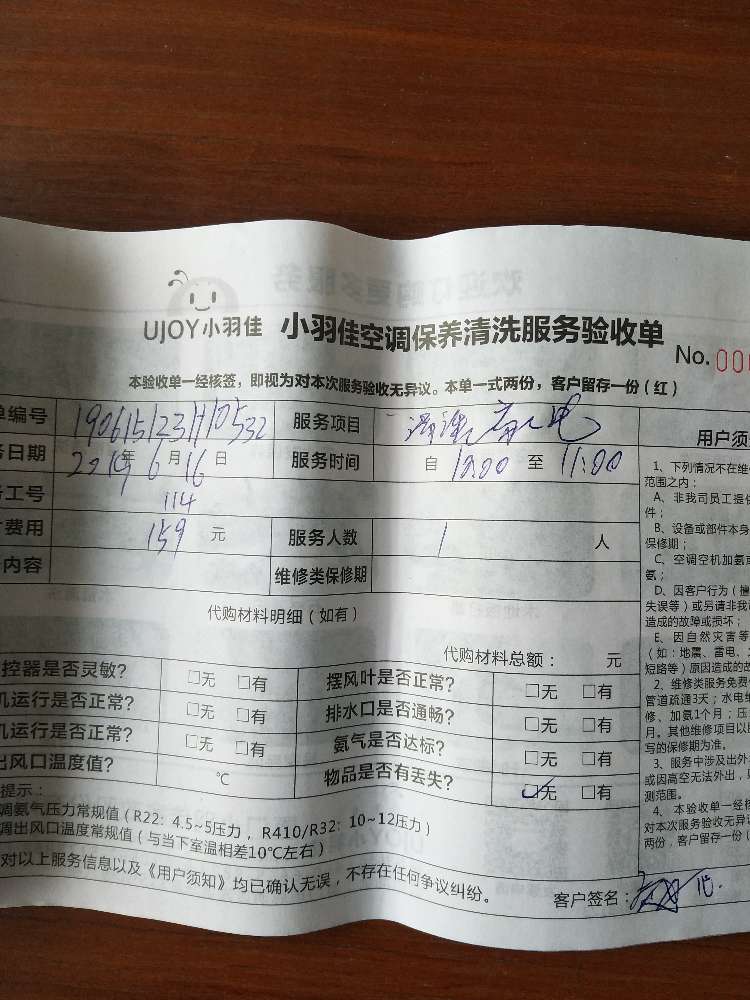 UJOY小羽佳 小羽佳空调保养清洗服务验收单
No.00
本验收单一经核签，即视为对本次服务验收无异议。本单一式两份，客户留存一份（红）
单编号 190615123110532 服务项目
务日期 2019年6月16日 服务时间 自10:00至11:00
务工号 114
费用 159元 服务人数 1人
内容 维修类保修期
代购材料明细（如有）
代购材料总额： 元
控器是否灵敏？ □无 □有 摆风叶是否正常？ □无 □有
机运行是否正常？ □无 □有 排水口是否通畅？ □无 □有
机运行是否正常？ □无 □有 氨气是否达标？ □无 □有
出风口温度值？ ℃ 物品是否有丢失？ ☑无 □有
提示：
调氨气压力常规值（R22：4.5~5压力，R410/R32：10~12压力）
调出风口温度常规值（与当下室温相差10℃左右）
对以上服务信息以及《用户须知》均已确认无误，不存在任何争议纠纷。
客户签名：
用户须
1、下列情况不在维
范围之内：
A、非我司员工提供
件；
B、设备或部件本身
保修期；
C、空调空机加氨或
氨；
D、因客户行为（擅
失误等）或另请非我
造成的故障或损坏；
E、因自然灾害等
（如：地震、雷电、
短路等）原因造成的故
2、维修类服务免费
管道疏通3天；水电维
修、加氨1个月；压
月。其他维修项目以
写的保修期为准。
3、服务中涉及出外
或因高空无法外出，
测范围。
4、本验收单一经核
对本次服务验收无异议
两份，客户留存一份（